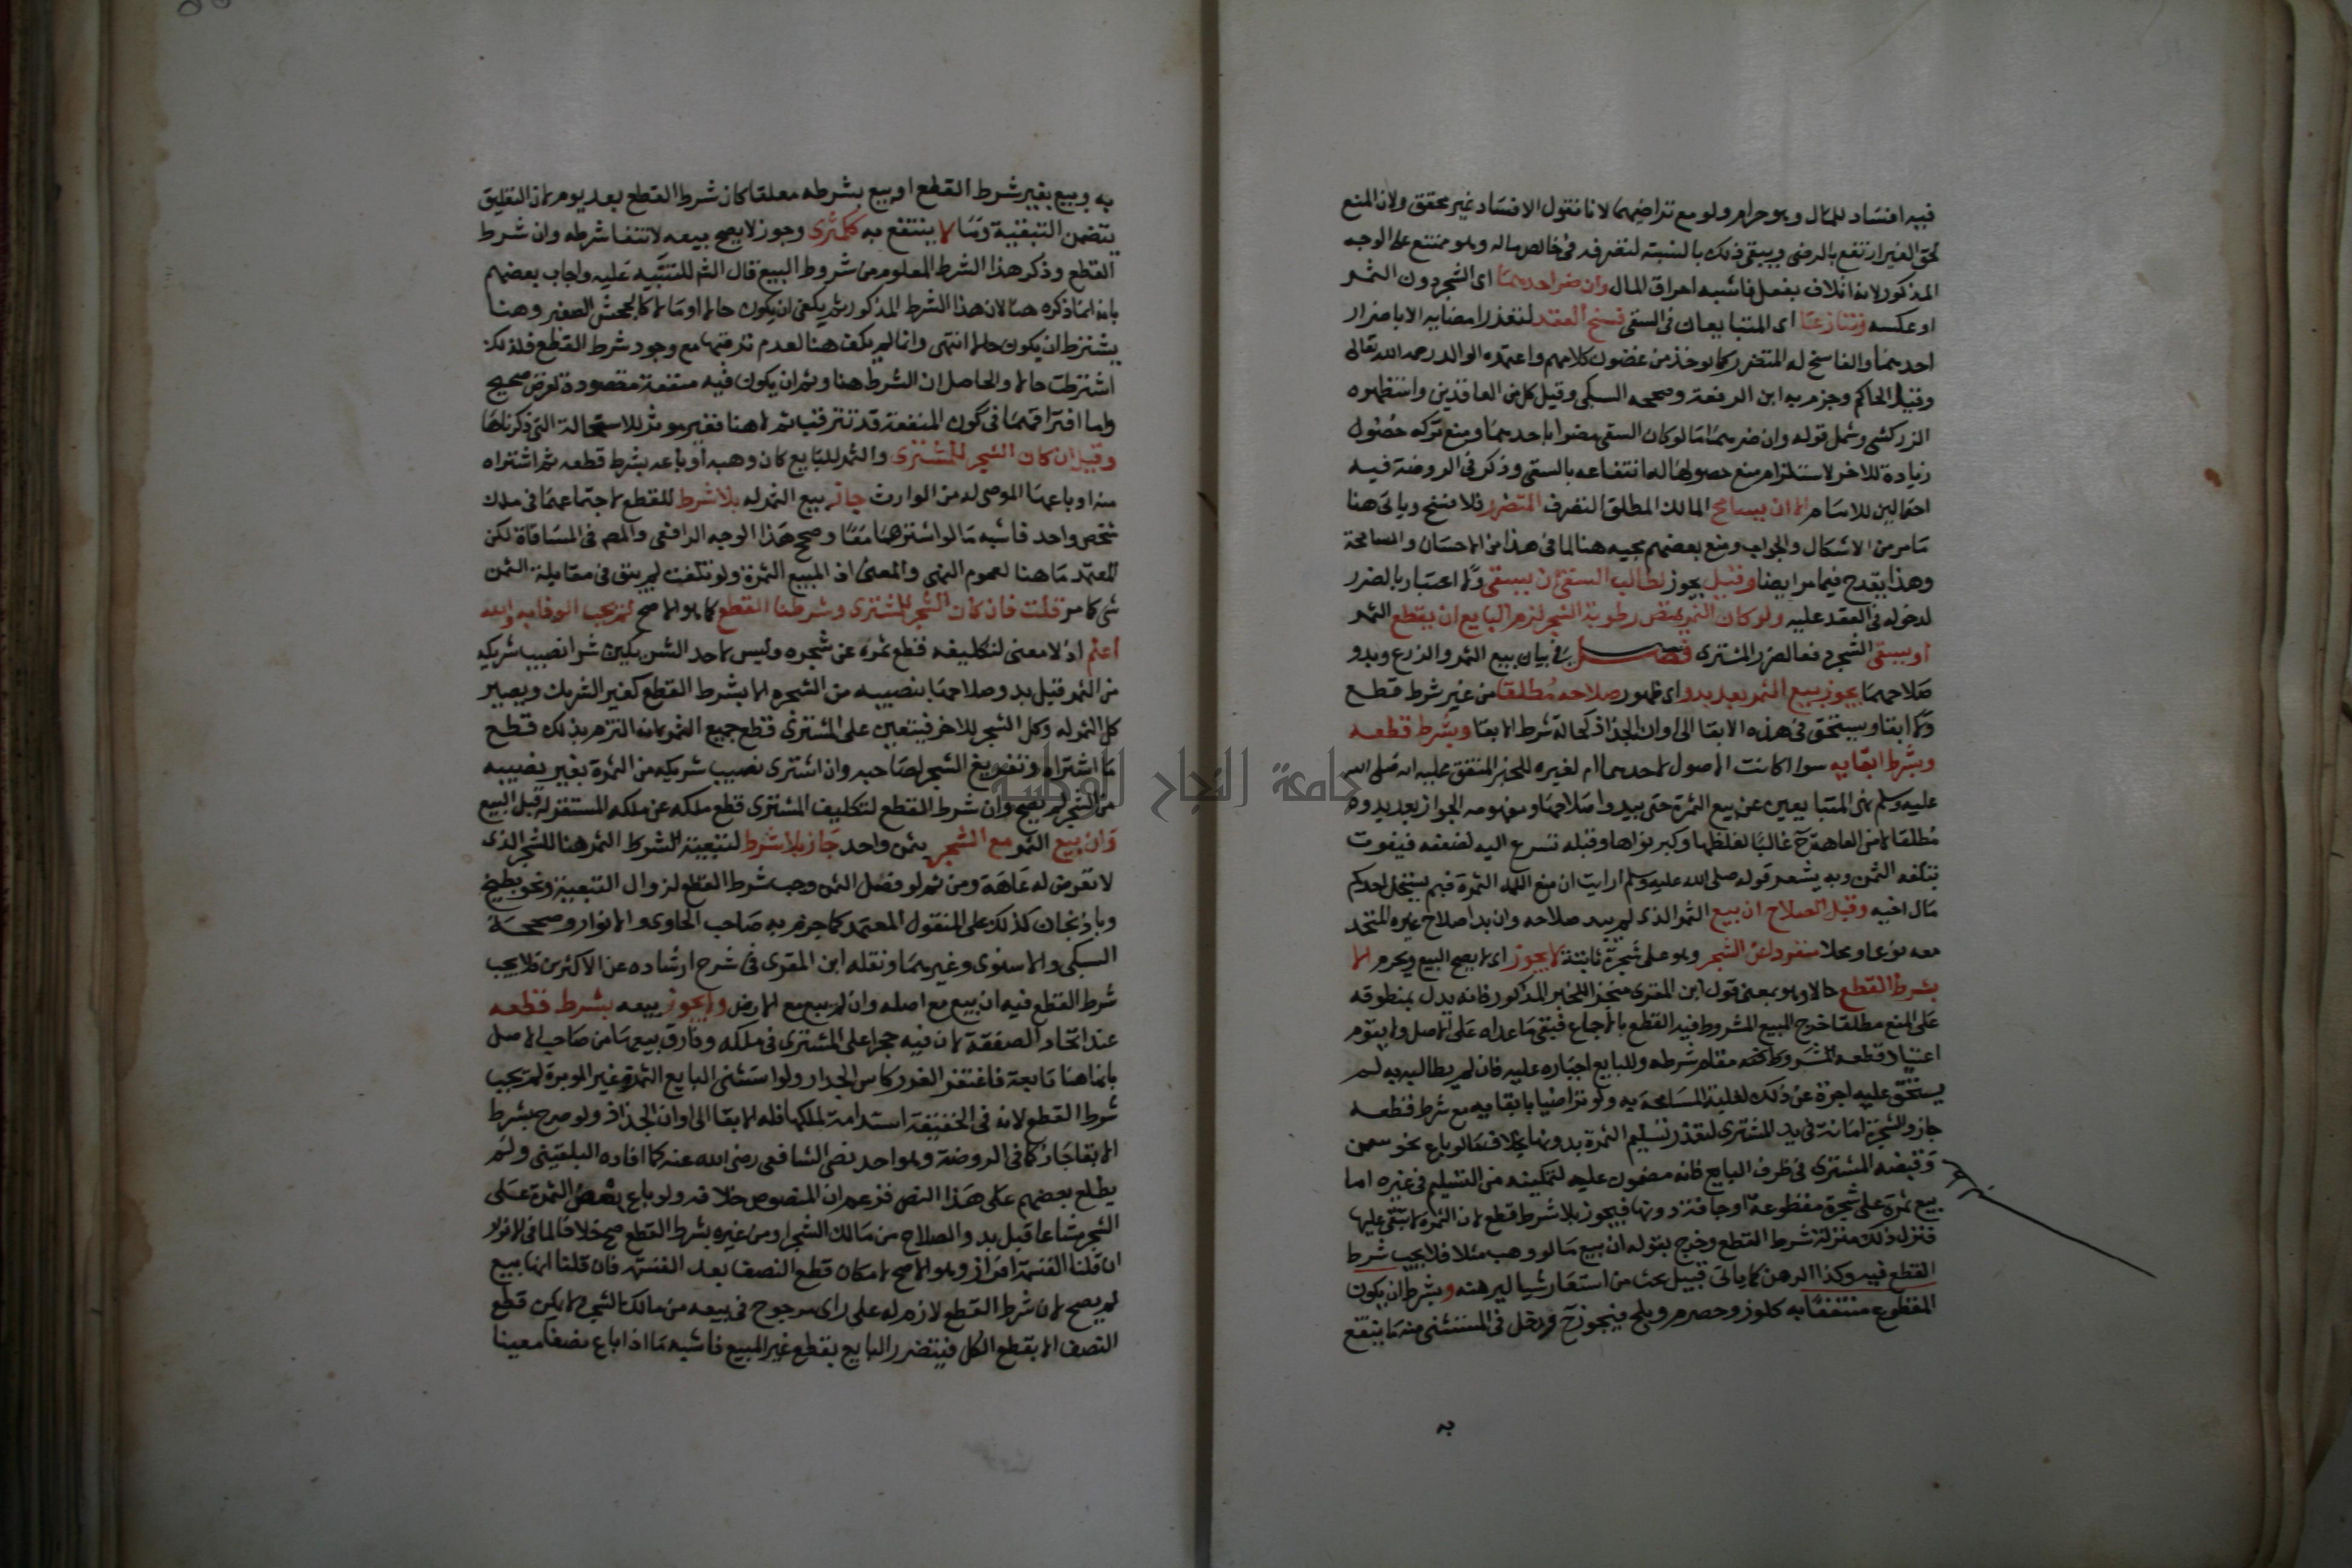 فيه افساد للمال وهو حرام ولو مع تراضيهما لانا نقول الافساد غير محقق ولان المنع
لحق الغير ارتفع بالرضى ويبقى ذلك بالنسبة لتصرفه في خالص ماله وهو ممتنع على الوجه
المذكور لانه اتلاف بفعل فاشبه احراق المال وان ضر احدهما اى الشجر دون الثمر
او عكسه وتنازعا اى المتبايعان في السقى فسخ العقد لتعذر امضايه الا باضرار
احدهما والفاسخ له المتضرر كما يوخذ من غضون كلامهم واعتمده الوالد رحمه الله تعالى
وقيل الحاكم وجزم به ابن الرفعة وصححه السبكى وقيل كل من العاقدين واستظهره
الزركشى وشمل قوله وان ضرهما ما لو كان السقى مضرا باحدهما ومنع تركه حصول
زيادة للاخر لاستلزام منع حصولها له انتفاعه بالسقى وذكر فى الروضة فيه
احتمالين للامام الا ان يسامح المالك المطلق التصرف المتضرر فلا فسخ وياتى هنا
مامر من الاشكال والجواب ومنع بعضهم مجيه هنا لما فى هذا من الاحسان والمسامحة
وهذا يقدح فيما مر ايضا وقيل يجوز لطالب السقى ان يسقى ولا اعتبار بالضرر
لدخوله فى العقد عليه ولو كان الثمر يمتص رطوبة الشجر لزم البايع ان يقطع الثمر
او يسقى الشجر دفعا لضرر المشترى فصل فى بيان بيع الثمر والزرع وبدو
صلاحهما يجوز بيع الثمر بعد بدو اى ظهور صلاحه مطلقا من غير شرط قطع
ولا ابقا ويستحق فى هذه الابقا الى اوان الجذاذ كحالة شرط الابقا وبشرط قطعه
وبشرط ابقايه سوا اكانت الاصول لاحدهما ام لغيره للخبر المتفق عليه انه صلى الله
عليه وسلم نهى المتبايعين عن بيع الثمرة حتى يبدوا صلاحها ومفهومه الجواز بعد بدوه
مطلقا لامن العاهة ح غالبا لغلظها وكبر نواها وقبله تسرع اليه لضعفه فيفوت
بتلفه الثمن وبه يشعر قوله صلى الله عليه وسلم ارايت ان منع الله الثمرة فبم يستحل احدكم
مال اخيه وقبل الصلاح ان بيع الثمر الذى لم يبد صلاحه وان بدا صلاح غيره المتحد
معه نوعا ومحلا منفردا عن الشجر وهو على شجرة ثابتة لا يجوز اى لا يصح البيع ويحرم الا
بشرط القطع حالا وهو بمعنى قول ابن المقرى منجزا للخبر المذكور فانه يدل بمنطوقه
على المنع مطلقا خرج المبيع المشروط فيه القطع بالاجماع فبقى ما عداه على الاصل ولا يقوم
اعتياد قطعه المشروط كفه مقام شرطه وللبايع اجباره عليه فان لم يطالبه به لم
يستحق عليه اجرة عن ذلك لغلبة المسامحة به ولو تراضيا بابقايه مع شرط قطعه
جاز والشجرة امانة فى يد المشترى لتعذر تسليم الثمرة بدونها بخلاف ما لو باع نحو سمن
وقبضه المشترى فى ظرف البايع فانه مضمون عليه لتمكينه من التسليم فى غيره اما
بيع ثمرة على شجرة مقطوعة او جافة دونها فيجوز بلا شرط قطع لان الثمرة لا تبقى عليها
فنزل ذلك منزلة شرط القطع وخرج بقوله ان بيع ما لو وهب مثلا فلا يجب شرط
القطع فيه وكذا الرهن كما ياتى قبيل بحث من استعار شيا ليرهنه وبشرط ان يكون
المقطوع منتفعا به كلوز وحصرم وبلح فيجوز ح ودخل فى المستثنى منه ما ينتفع
به
به وبيع بغير شرط القطع او بيع بشرطه معلقا كان شرط القطع بعد يوم لان التعليق
يتضمن التبقية وما لا ينتفع به ككمثرى وجوز لا يصح بيعه لانتفا شرطه وان شرط
القطع وذكر هذا الشرط المعلوم من شروط البيع قال الشم للتنبيه عليه واجاب بعضهم
بانه انما ذكره هنا لان هذا الشرط المذكور ثم يكفى ان يكون حالا او مالا كالجحش الصغير وهنا
يشترط ان يكون حالا انتهى وانما لم يكف هنا لعدم ترقبها مع وجود شرط القطع فلذلك
اشترطت حالا والحاصل ان الشرط هنا وثم ان يكون فيه منفعة مقصودة لغرض صحيح
واما افتراقهما فى كون المنفعة قد تترقب ثم لا هنا فغير موثر للاستحالة التى ذكرناها
وقيل ان كان الشجر للمشترى والثمر للبايع كان وهبه او باعه بشرط قطعه ثم اشتراه
منه او باعها الموصى له من الوارث جاز بيع الثمر له بلا شرط للقطع لاجتماعهما فى ملك
شخص واحد فاشبه ما لو اشترهما معا وصحح هذا الوجه الرافعى والمص فى المساقاة لكن
المعتمد ما هنا لعموم النهى والمعنى اذ المبيع الثمرة ولو تلفت لم يبق فى مقابلة الثمن
شى كامر قلت فان كان الشجر للمشترى وشرطنا القطع كما هو الاصح لم يجب الوفا به والله
اعلم اذ لا معنى لتكليفه قطع ثمره عن شجره وليس لاحد الشريكين شرا نصيب شريكه
من الثمر قبل بدو صلاحها بنصيبه من الشجر الا بشرط القطع كغير الشريك ويصير
كل الثمر له وكل الشجر للاخر فيتعين على المشترى قطع جميع الثمر لانه التزم بذلك قطع
ما اشتراه وتفريغ الشجر لصاحبه وان اشترى نصيب شريكه من الثمرة بغير نصيبه
من الشجر لم يصح وان شرط القطع لتكليف المشترى قطع ملكه عن ملكه المستقر له قبل البيع
وان بيع الثمر مع الشجر بثمن واحد جاز بلا شرط لتبعية الشرط الثمر هنا للشجر الذى
لا تعرض له عاهة ومن ثم لو فصل الثمن وجب شرط القطع لزوال التبعية ونحو بطيخ
وباذنجان كذلك على المنقول المعتمد كما جزم به صاحب الحاوى والانوار وصححه
السبكى والاسنوى وغيرهما ونقله ابن المقرى فى شرح ارشاده عن الاكثرين فلا يجب
شرط القطع فيه ان بيع مع اصله وان لم يبع مع الارض ولا يجوز بيعه بشرط قطعه
عند اتحاد الصفقة لان فيه حجرا على المشترى فى ملكه وفارق بيعها من صاحب الاصل
بانها هنا تابعة فاغتفر الغرر كاس الجدار ولو استثنى البايع الثمرة غير الموبرة لم يجب
شرط القطع لانه فى الحقيقة استدامة لملكها فله الابقا الى اوان الجذاذ ولو صرح بشرط
الابقا جاز كما فى الروضة وهو احد نصى الشافعى رضى الله عنه كما افاده البلقينى ولم
يطلع بعضهم على هذا النص فزعم ان المنصوص خلافه ولو باع بعض الثمرة على
الشجر مشاعا قبل بدو الصلاح من مالك الشجر او من غيره بشرط القطع صح خلافا لما فى الانوار
ان قلنا القسمة افراز وهو الاصح لامكان قطع النصف بعد القسمة فان قلنا انها بيع
لم يصح لان شرط القطع لازم له على راى مرجوح فى بيعه من مالك الشجر ولا يمكن قطع
النصف الا بقطع الكل فيتضرر البايع بقطع غير المبيع فاشبه ما اذا باع نصفا معينا
جامعة النجاح الوطنية